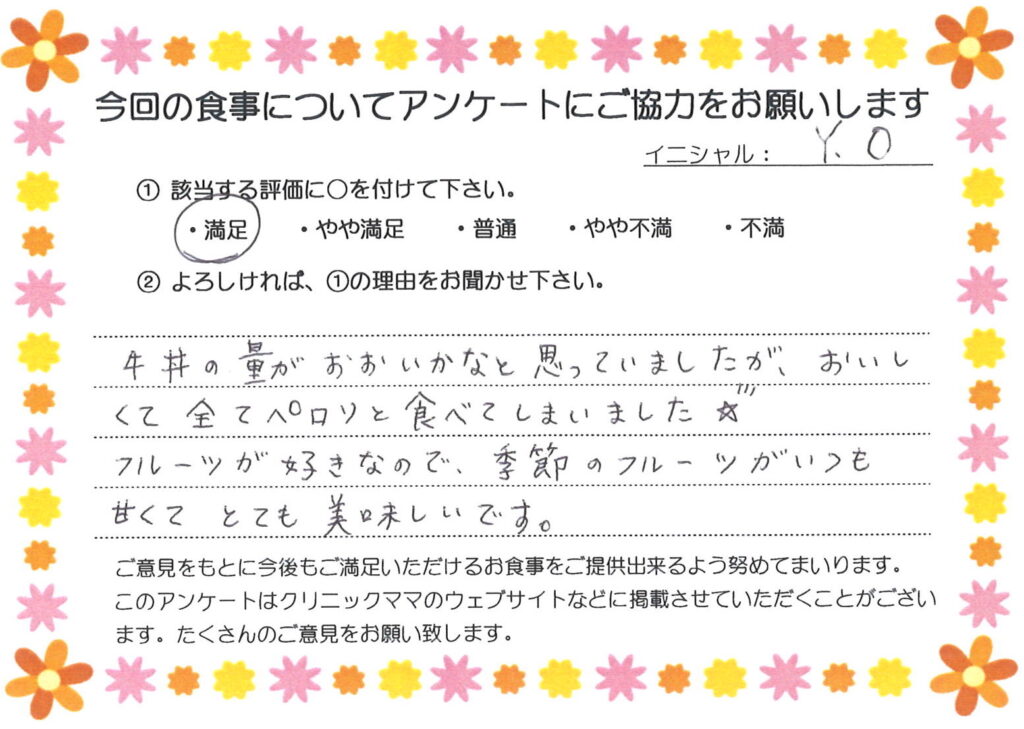 今回の食事についてアンケートにご協力をお願いします
イニシャル： Y. O
① 該当する評価に○を付けて下さい。
・満足 ・やや満足 ・普通 ・やや不満 ・不満
② よろしければ、①の理由をお聞かせ下さい。
牛丼の量がおおいかなと思っていましたが、おいし
くて全てペロリと食べてしまいました☆
フルーツが好きなので、季節のフルーツがいつも
甘くて とても 美味しいです。
ご意見をもとに今後もご満足いただけるお食事をご提供出来るよう努めてまいります。
このアンケートはクリニックママのウェブサイトなどに掲載させていただくことがござい
ます。たくさんのご意見をお願い致します。